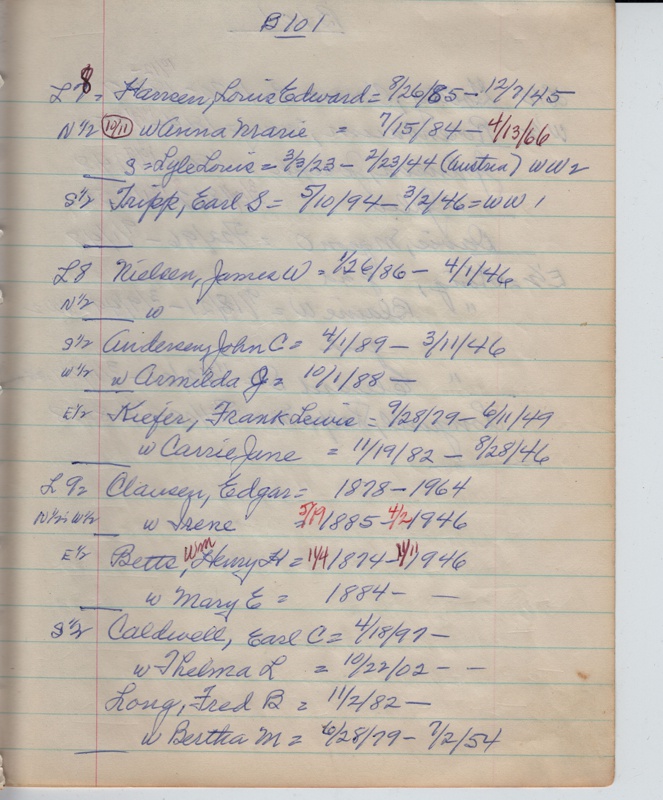 B101
L7 8 = Hansen, Louis Edward = 8/26/85 – 12/7/45
N 1/2 10/11 w Anna Marie = 7/15/84 – 4/13/66
S = Lyle Louis = 3/3/23 – 2/23/44 (Austria) WW2
S 1/2 Tripp, Earl S = 5/10/94 – 3/2/46 = WW 1
L8 Nielsen, James W = 1/26/86 – 4/1/46
N 1/2 w
S 1/2 Andersen, John C = 4/1/89 – 3/11/46
W 1/2 w Armilda J = 10/1/88 –
E 1/2 Kiefer, Frank Lewis = 9/28/79 – 6/11/49
w Carrie Jane = 11/19/82 – 8/28/46
L9 = Clausen, Edgar = 1878 – 1964
N 1/2 W 1/2 w Irene = 5/19 1885 – 4/2 1946
E 1/2 Betts, Wm Henry H = 11/4 1874 – 11/11 1946
w Mary E = 1884 – –
S 1/2 Caldwell, Earl C = 4/18/97 –
w Thelma L = 10/22/02 – –
Long, Fred B = 11/2/82 –
w Bertha M = 6/28/79 – 7/2/54